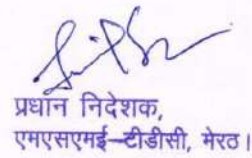 प्रधान निदेशक,
एमएसएमई-टीडीसी, मेरठ।